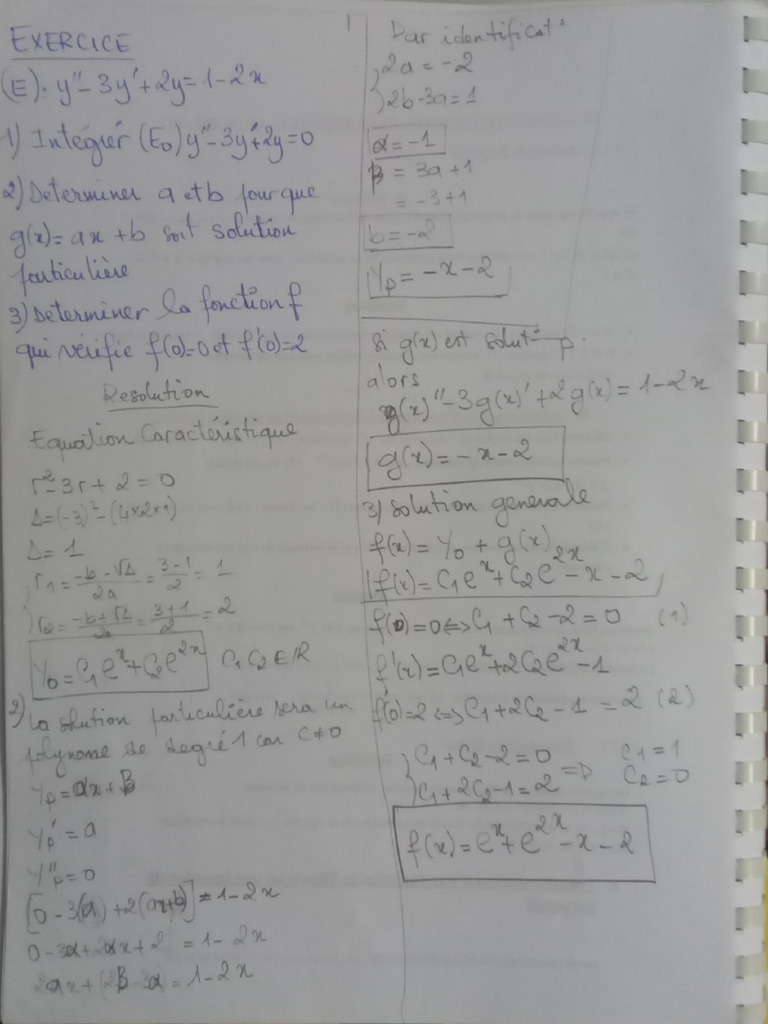 EXERCICE
(E): y'' - 3y' + 2y = 1 - 2x
1) Intégrer (E₀) y'' - 3y' + 2y = 0
2) Determiner a et b pour que
g(x) = ax + b soit solution
particulière
3) Determiner la fonction f
qui vérifie f(0)=0 et f'(0)=2
Resolution
Equation Caractéristique
r² - 3r + 2 = 0
Δ = (-3)² - (4×2×1)
Δ = 1
r₁ = (-b - √Δ)/2a = (3-1)/2 = 1
r₂ = (-b + √Δ)/2a = (3+1)/2 = 2
Y₀ = C₁eˣ + C₂e²ˣ C₁ C₂ ∈ ℝ
2) la solution particulière sera un
polynome de degré 1 car C≠0
Yp = αx + β
Yp' = a
Yp'' = 0
[0 - 3(a) + 2(ax+b)] = 1 - 2x
0 - 3α + 2αx + 2 = 1 - 2x
2ax + (2β - 3α) = 1 - 2x
1
Par identificat°
2a = -2
2b - 3a = 1
α = -1
β = 3a + 1
= -3 + 1
b = -2
Yp = -x - 2
si g(x) est solut° p.
alors
g(x)'' - 3g(x)' + 2g(x) = 1 - 2x
g(x) = -x - 2
3) Solution generale
f(x) = Y₀ + g(x)
f(x) = C₁eˣ + C₂e²ˣ - x - 2
f(0) = 0 ⇔ C₁ + C₂ - 2 = 0 (1)
f'(x) = C₁eˣ + 2C₂e²ˣ - 1
f'(0) = 2 ⇔ C₁ + 2C₂ - 1 = 2 (2)
C₁ + C₂ - 2 = 0 C₁ = 1
C₁ + 2C₂ - 1 = 2 ⇒ C₂ = 0
f(x) = eˣ + e²ˣ - x - 2